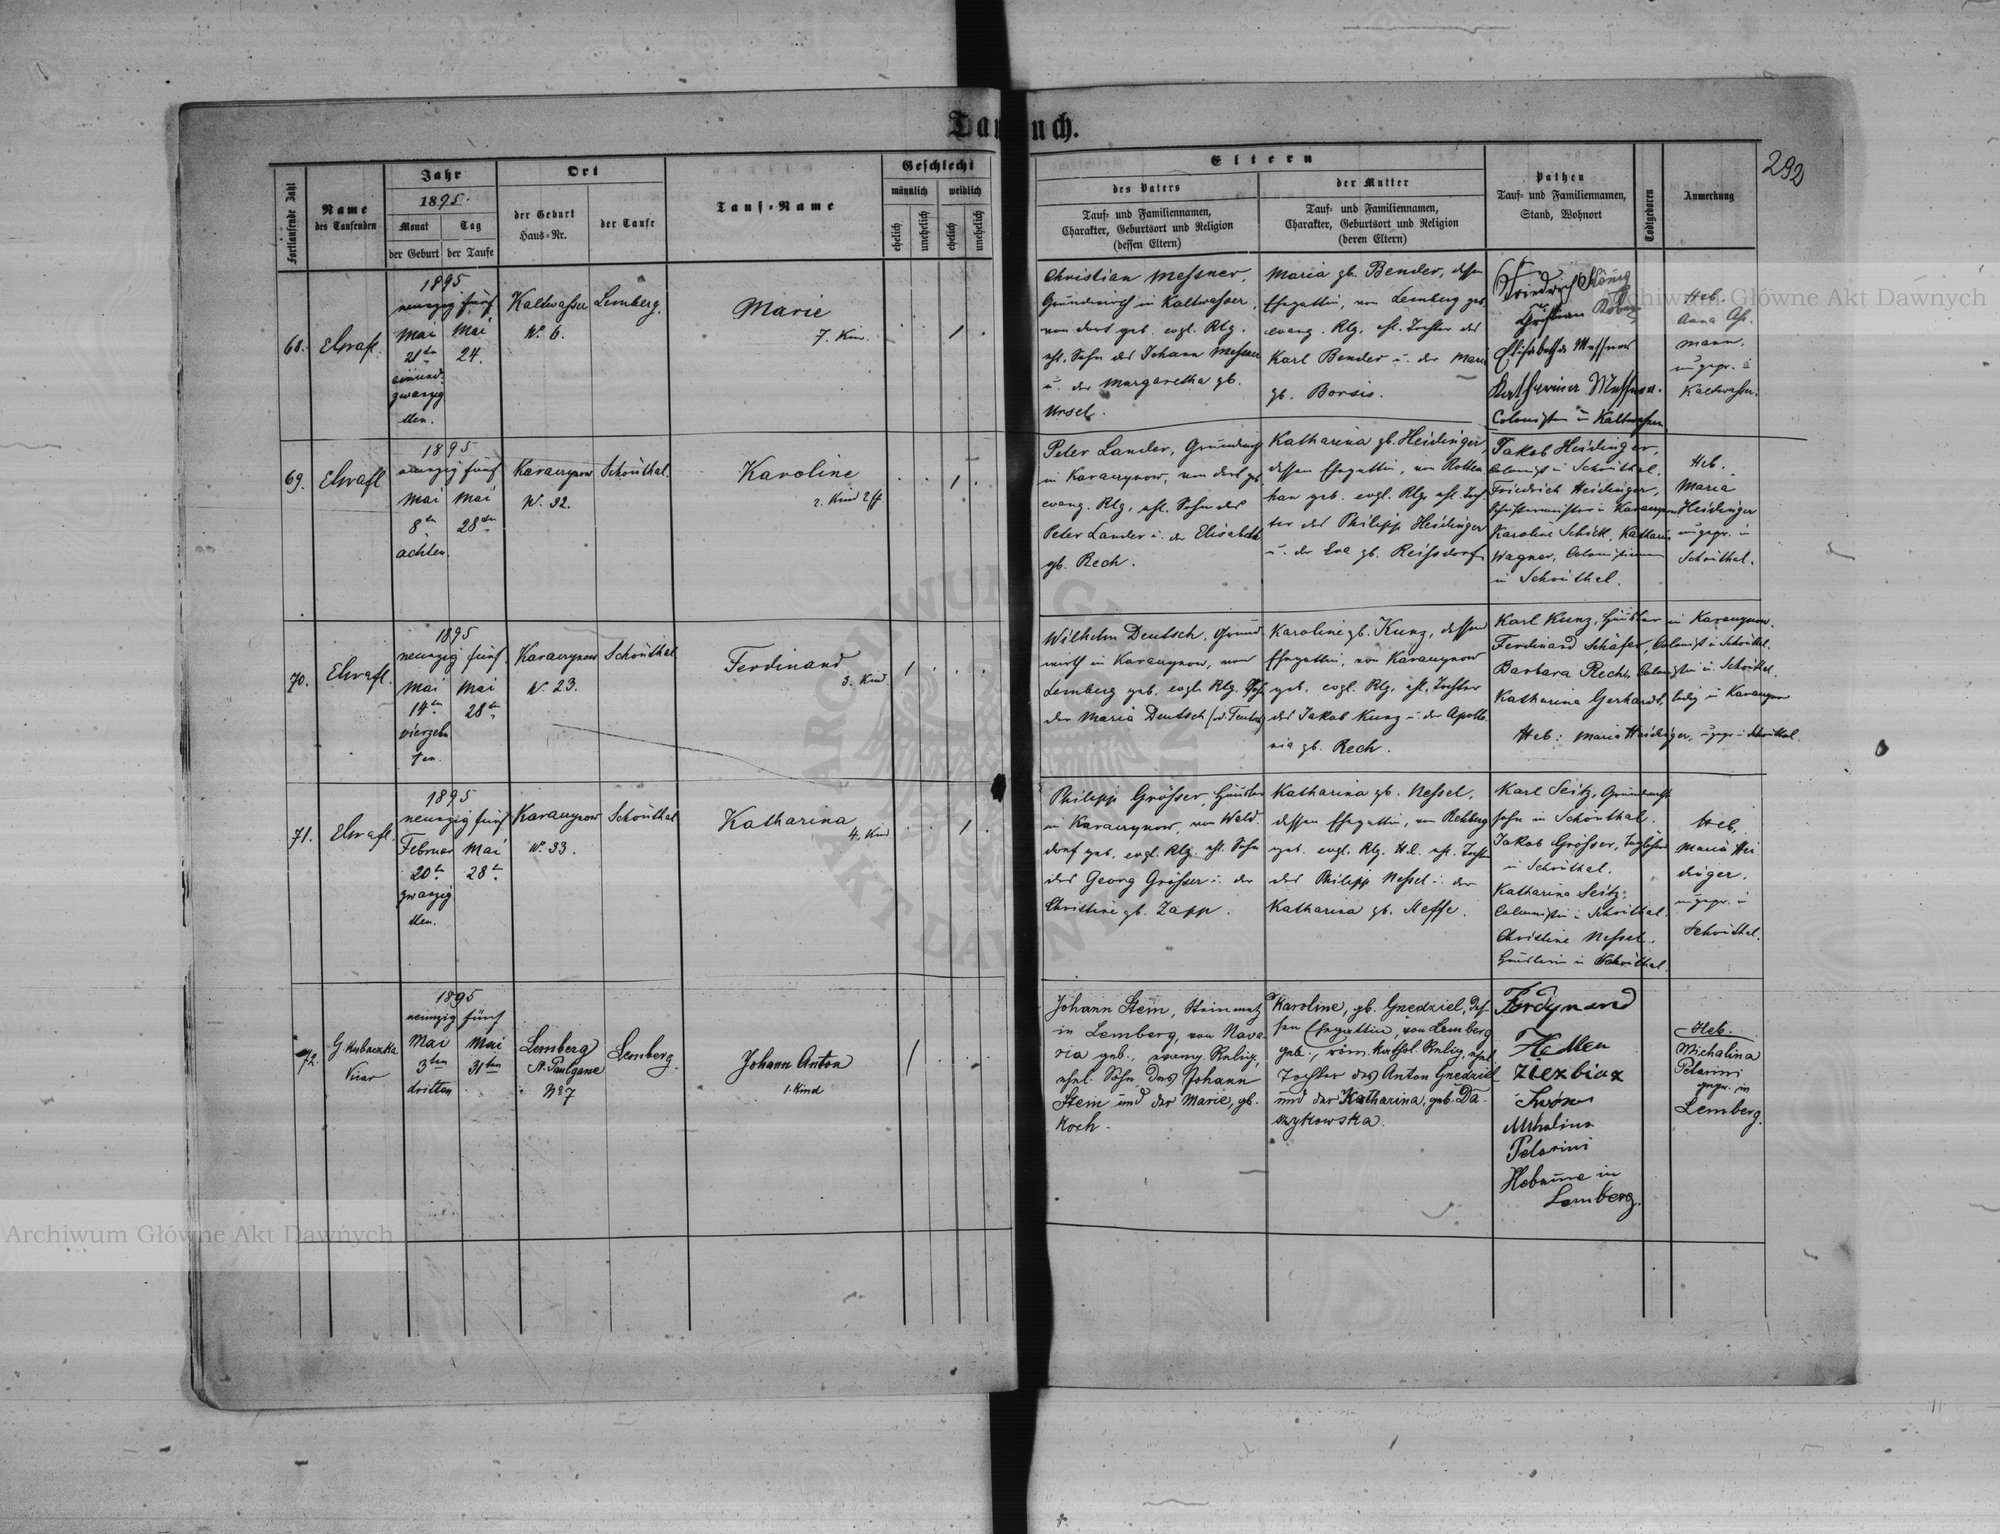 Taufbuch.
292
Fortlaufende Zahl
Name
des Taufenden
Jahr
1895.
Monat
Tag
der Geburt
der Taufe
Ort
der Geburt
Haus-Nr.
der Taufe
Tauf-Name
Geschlecht
männlich
weiblich
ehelich
unehelich
ehelich
unehelich
Eltern
des Vaters
Tauf- und Familiennamen,
Charakter, Geburtsort und Religion
(dessen Eltern)
der Mutter
Tauf- und Familiennamen,
Charakter, Geburtsort und Religion
(deren Eltern)
Pathen
Tauf- und Familiennamen,
Stand, Wohnort
Todtgeboren
Anmerkung
68.
1895
neunzig fünf
Mai
21ten
einund-
zwanzig
sten.
Mai
24.
Kaltwasser
N. 6.
Lemberg.
Marie
7. Kind.
Christian Messner,
Grundwirth in Kaltwasser,
von dort geb. evgl. Rlg.
ehl. Sohn des Johann Messner
u. der Margaretha gb.
Ursel.
Maria gb. Bender, dessen
Ehegattin, von Lemberg geb.
evang. Rlg. ehl. Tochter des
Karl Bender u. der Marie
gb. Borsis.
Friedrich König
Christian
Elisabetha Messner
Katharina Messner.
Colonisten in Kaltwasser
Heb.
Anna
mann,
ungepr. in
Kaltwasser.
69.
1895
neunzig fünf
Mai
8ten
achten.
Mai
28ten
Karaczynow
N. 32.
Schönthal
Karoline
2. Kind 2 ff
Peter Lander, Grundwirth
in Karaczynow, von dort gb.
evang. Rlg., ehl. Sohn des
Peter Lander u. der Elisabeth
gb. Rech.
Katharina gb. Heidinger,
dessen Ehegattin, von Rotten
han geb. evgl. Rlg. ehl. Toch-
ter des Philipp Heidinger
u. der Eva gb. Reissdorf
Jakob Heidinger,
Colonist in Schönthal.
Friedrich Heidinger,
in Karaczynow
Karoline Schick, Katharina
Wagner, Colonistinnen
in Schönthal.
Heb.
Maria
Heidinger
ungepr. in
Schönthal.
70.
1895
neunzig fünf
Mai
14ten
vierzehn
ten.
Mai
28ten
Karaczynow
N. 23.
Schönthal
Ferdinand
3. Kind.
Wilhelm Deutsch, Grund-
wirth in Karaczynow, von
Lemberg geb. evgl. Rlg. Sohn
der Maria Deutsch
Karoline gb. Kunz, dessen
Ehegattin, von Karaczynow
geb. evgl. Rlg. ehl. Tochter
des Jakob Kunz u. der Apollo-
nia gb. Rech.
Karl Kunz, Häusler in Karaczynow.
Ferdinand Schäfer, Colonist in Schönthal.
Barbara Rech, Colonistin in Schönthal.
Katharina Gerhardt, ledig in Karaczynow
Heb: Maria Heidinger, ungepr. in Schönthal.
71.
1895
neunzig fünf
Februar
20ten
zwanzig
sten.
Mai
28ten
Karaczynow
N. 33.
Schönthal
Katharina
4. Kind
Philipp Grösser, Häusler
in Karaczynow, von Wald-
dorf geb. evgl. Rlg. ehl. Sohn
des Georg Grösser u. der
Christine gb. Zapp.
Katharina gb. Nessel,
dessen Ehegattin, von Rehberg
geb. evgl. Rlg. H.C. ehl. Tochter
des Philipp Nessel u. der
Katharina gb. Steffe.
Karl Seitz, Grundwirth
sohn in Schönthal.
Jakob Grösser, Taglöhner
in Schönthal.
Katharina Seitz,
Colonistin in Schönthal.
Christine Nessel,
Häuslerin in Schönthal.
Heb.
Maria Hei-
dinger,
ungepr. in
Schönthal.
72.
Vicar
1895
neunzig fünf
Mai
3ten
dritten
Mai
31ten
Lemberg
St. Paulgasse
No 7
Lemberg.
Johann Anton
1. Kind
Johann Stein, Steinmetz
in Lemberg, von Nava-
ria geb., evang. Relig.,
ehel. Sohn des Johann
Stein und der Marie, gb.
Koch.
Karoline, gb. Gnedziel, Des-
sen Ehegattin, von Lemberg
geb., röm. kathol. Relig., ehel.
Tochter des Anton Gnedziel
und der Katharina, geb. Da-
szykowska.
Ferdynand
Michalina
Pelarini
Hebamme in
Lemberg.
Heb.
Michalina
Pelarini
gepr. in
Lemberg.
Archiwum Główne Akt Dawnych
Archiwum Główne Akt Dawnych
ARCHIWUM GŁÓWNE AKT DAWNYCH